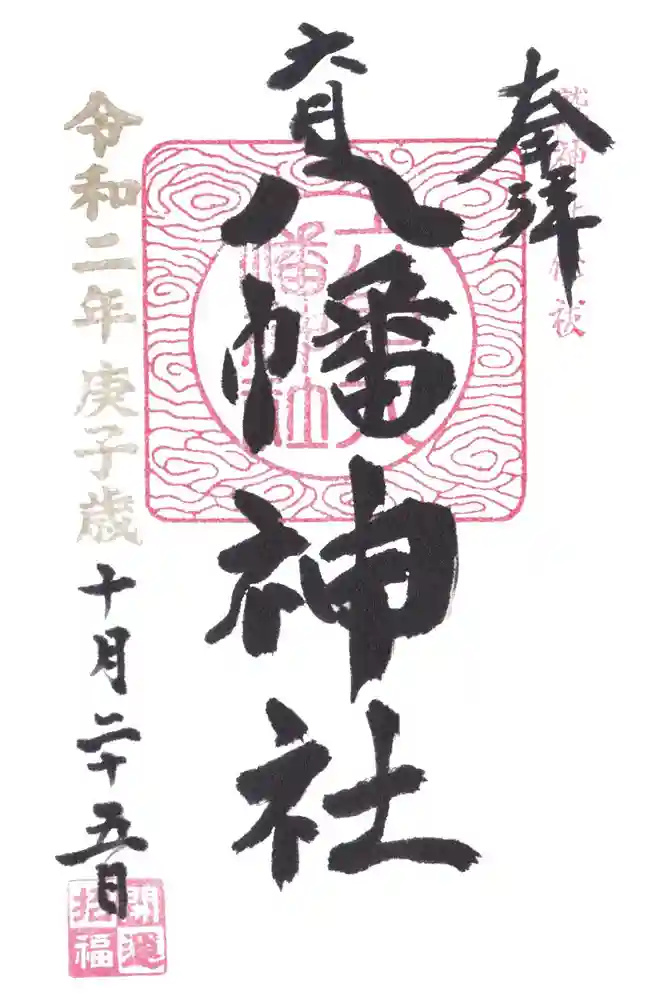 奉拝
六月八幡神社
令和二年庚子歳十月二十五日
開運
招福